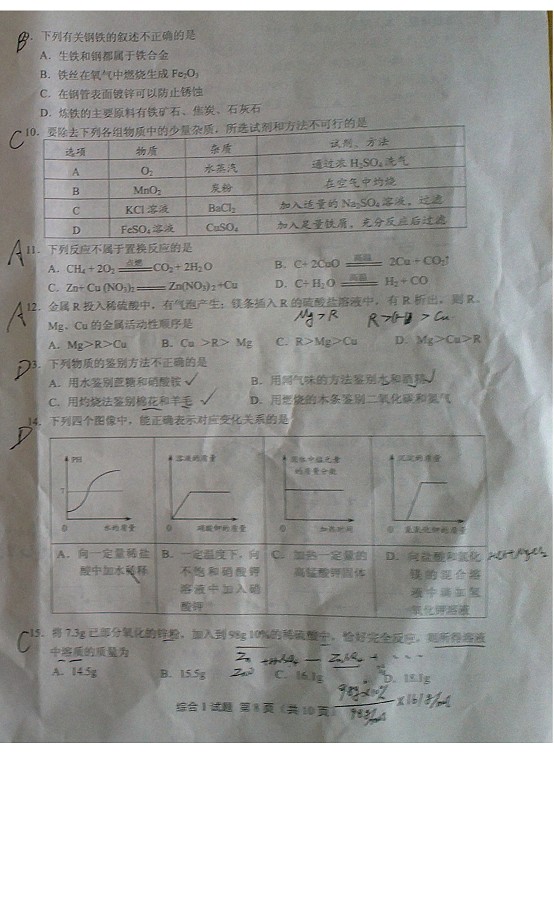 B 9. 下列有关钢铁的叙述不正确的是
A. 生铁和钢都属于铁合金
B. 铁丝在氧气中燃烧生成 Fe₂O₃
C. 在钢管表面镀锌可以防止锈蚀
D. 炼铁的主要原料有铁矿石、焦炭、石灰石
C 10. 要除去下列各组物质中的少量杂质，所选试剂和方法不可行的是
选项 物质 杂质 试剂、方法
A O₂ 水蒸汽 通过浓 H₂SO₄ 洗气
B MnO₂ 炭粉 在空气中灼烧
C KCl 溶液 BaCl₂ 加入适量的 Na₂SO₄ 溶液，过滤
D FeSO₄ 溶液 CuSO₄ 加入足量铁质，充分反应后过滤
A 11. 下列反应不属于置换反应的是
A. CH₄ + 2O₂ 点燃 CO₂ + 2H₂O B. C+ 2CuO 高温 2Cu + CO₂↑
C. Zn+ Cu (NO₃)₂ Zn(NO₃)₂ +Cu D. C+ H₂O 高温 H₂ + CO
A 12. 金属 R 投入稀硫酸中，有气泡产生；镁条插入 R 的硫酸盐溶液中，有 R 析出，则 R、
Mg、Cu 的金属活动性顺序是 Mg>R R>(H)>Cu
A. Mg>R>Cu B. Cu >R> Mg C. R>Mg>Cu D. Mg>Cu>R
D 13. 下列物质的鉴别方法不正确的是
A. 用水鉴别蔗糖和硝酸铵 ✓ B. 用闻气味的方法鉴别水和酒精 ✓
C. 用灼烧法鉴别棉花和羊毛 ✓ D. 用燃烧的木条鉴别二氧化碳和氮气
D 14. 下列四个图像中，能正确表示对应变化关系的是
PH 7 0 水的质量
溶液的质量 0 硝酸钾的质量
固体中锰元素的质量分数 0 加热时间
沉淀的质量 0 氢氧化钾的质量
A. 向一定量稀盐酸中加水稀释
B. 一定温度下，向不饱和硝酸钾溶液中加入硝酸钾
C. 加热一定量的高锰酸钾固体
D. 向盐酸和氯化镁的混合溶液中滴加氢氧化钾溶液
C 15. 将 7.3g 已部分氧化的锌粉，加入到 98g 10%的稀硫酸中，恰好完全反应，则所得溶液
中溶质的质量为
A. 14.5g B. 15.5g C. 16.1g D. 18.1g
综合 1 试题 第 8 页（共 10 页）